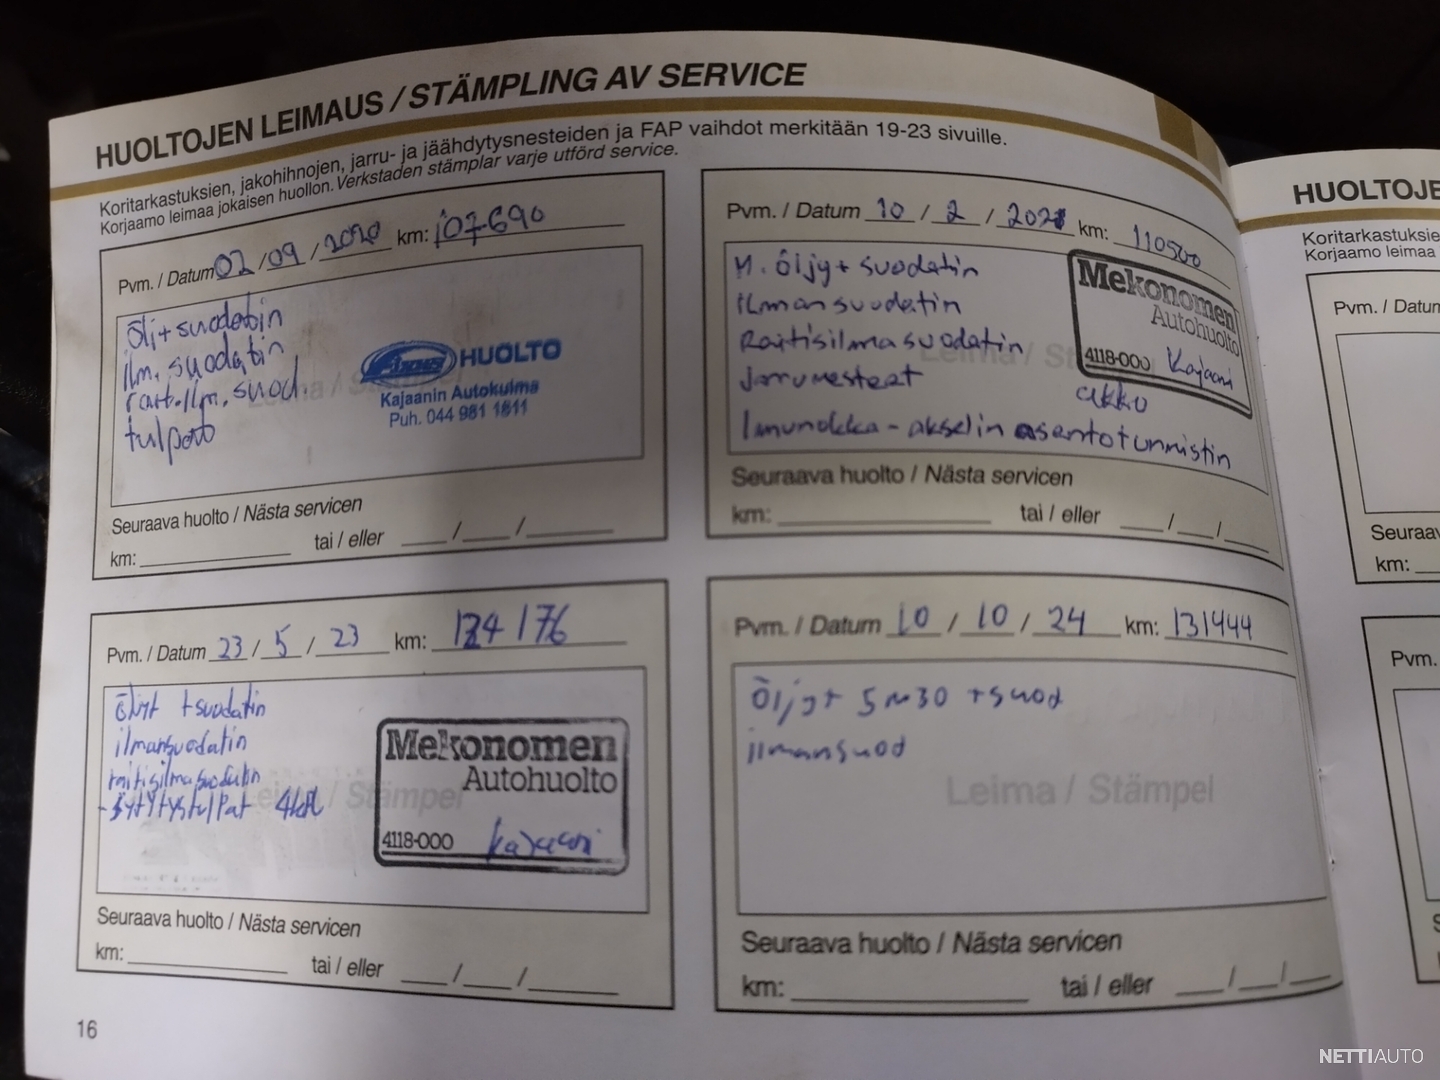 HUOLTOJEN LEIMAUS / STÄMPLING AV SERVICE
Koritarkastuksien, jakohihnojen, jarru- ja jäähdytysnesteiden ja FAP vaihdot merkitään 19-23 sivuille.
Korjaamo leimaa jokaisen huollon. Verkstaden stämplar varje utförd service.
Pvm. / Datum 02 / 09 / 2020 km: 107690
Ölj+suodatin
ilm. suodatin
rait.ilm. suod.
tulpat
HUOLTO
Kajaanin Autokulma
Puh. 044 981 1811
Seuraava huolto / Nästa servicen
km: tai / eller / /
Pvm. / Datum 10 / 2 / 2021 km: 110500
M. öljy + suodatin
ilmansuodatin
Raitisilmasuodatin
Jarrunesteet
Imunokka-akselin asentotunnistin
Leima / Stämpel
Mekonomen
Autohuolto
4118-000 Kajaani
akku
Seuraava huolto / Nästa servicen
km: tai / eller / /
Pvm. / Datum 23 / 5 / 23 km: 124176
öljyt +suodatin
ilmansuodatin
raitisilmasuodatin
-sytytystulpat 4kpl
Leima / Stämpel
Mekonomen
Autohuolto
4118-000 kajaani
Seuraava huolto / Nästa servicen
km: tai / eller / /
Pvm. / Datum 10 / 10 / 24 km: 131444
Öljyt 5w30 +suod
ilmansuod
Leima / Stämpel
Seuraava huolto / Nästa servicen
km: tai / eller / /
16
HUOLTOJE
Koritarkastuksie
Korjaamo leimaa
Pvm. / Datum
Seuraav
km:
Pvm.
NETTIAUTO